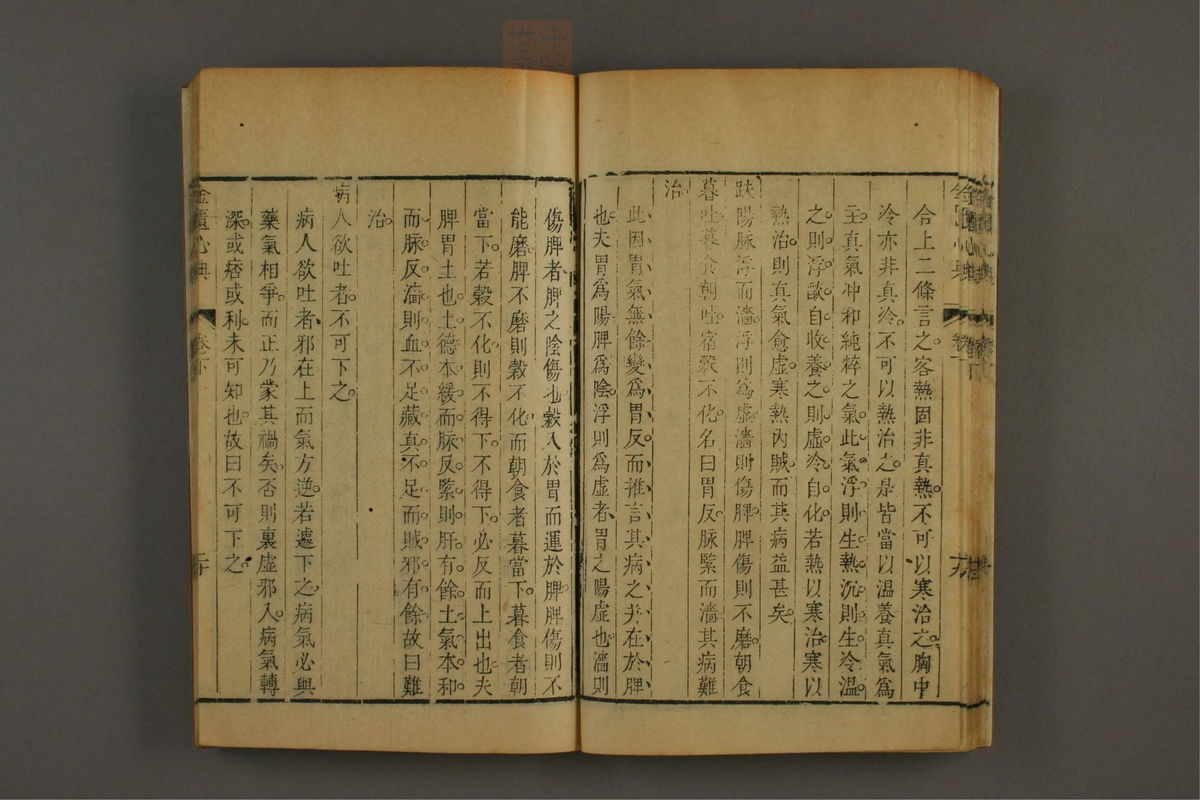 合上二條言之客熱固非真熱不可以寒治之胸中
冷亦非真冷不可以熱治之是皆當以溫養真氣爲
主真氣冲和純粹之氣此氣浮則生熱沉則生冷溫
之則浮談自收養之則虛冷自化若熱以寒治寒以
熱治則真氣愈虛寒熱內賊而其病益甚矣
趺陽脉浮而濇浮則爲虛濇則傷脾脾傷則不磨朝食
暮吐暮食朝吐宿穀不化名曰胃反脉緊而濇其病難
治
此因胃氣無餘變爲胃反而推言其病之并在於脾
也夫胃爲陽脾爲陰浮則爲虛者胃之陽虛也濇則
傷脾者脾之陰傷也穀入於胃而運於脾脾傷則不
能磨脾不磨則穀不化而朝食者暮當下暮食者朝
當下若穀不化則不得下不得下必反而上出也夫
脾胃土也土德本緩而脉反緊則肝有餘土氣本和
而脉反濇則血不足藏真不足而賊邪有餘故曰難
治
病人欲吐者不可下之
病人欲吐者邪在上而氣方逆若遽下之病氣必與
藥氣相爭而正乃蒙其禍矣否則裏虛邪入病氣轉
深或痞或利未可知也故曰不可下之
金匱心典
卷下
二十